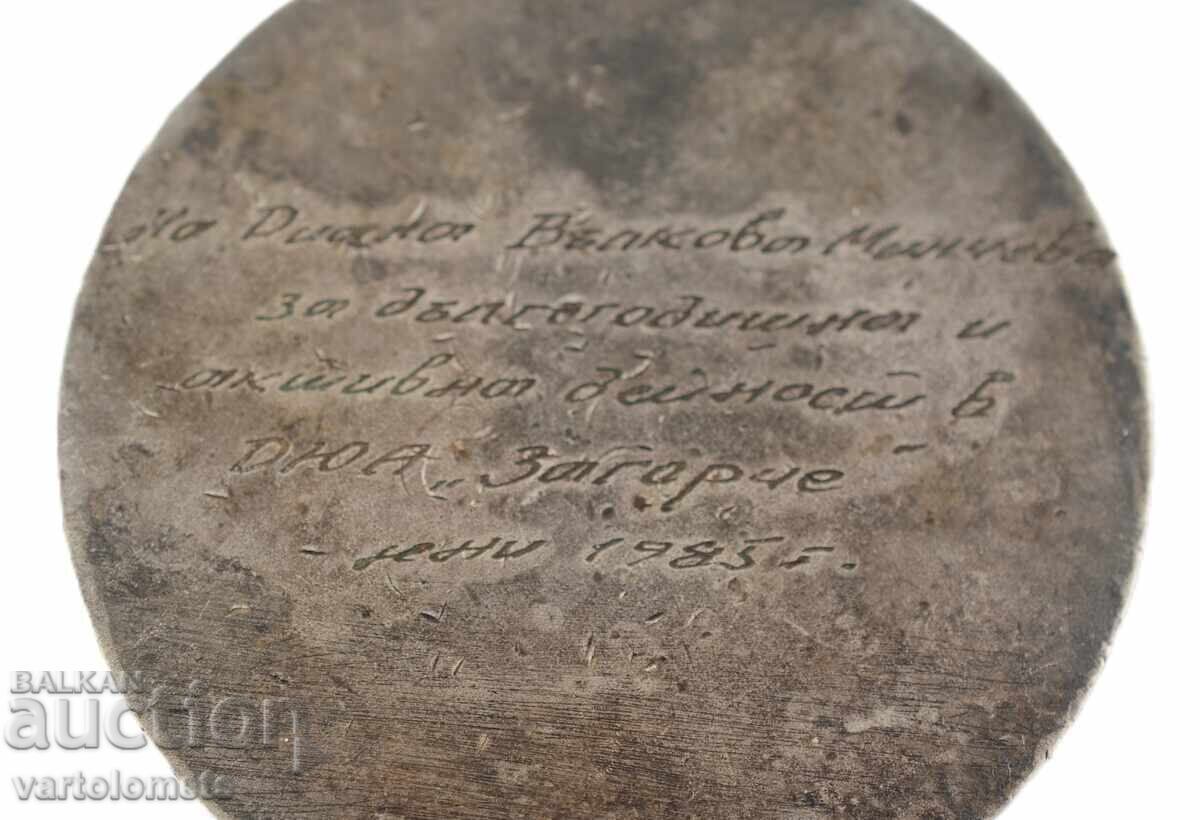 На Диана Вълкова Минчева
за дългогодишна и
активна дейност в
ДЮА „Загорче
юни 1985 г.
BALKAN
auction
vartolomeis